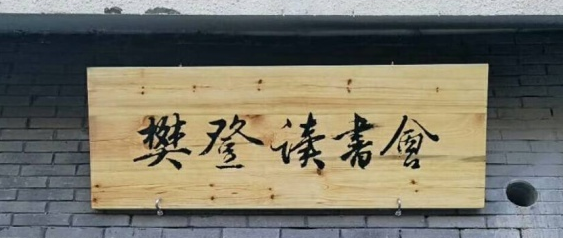 樊登读書會